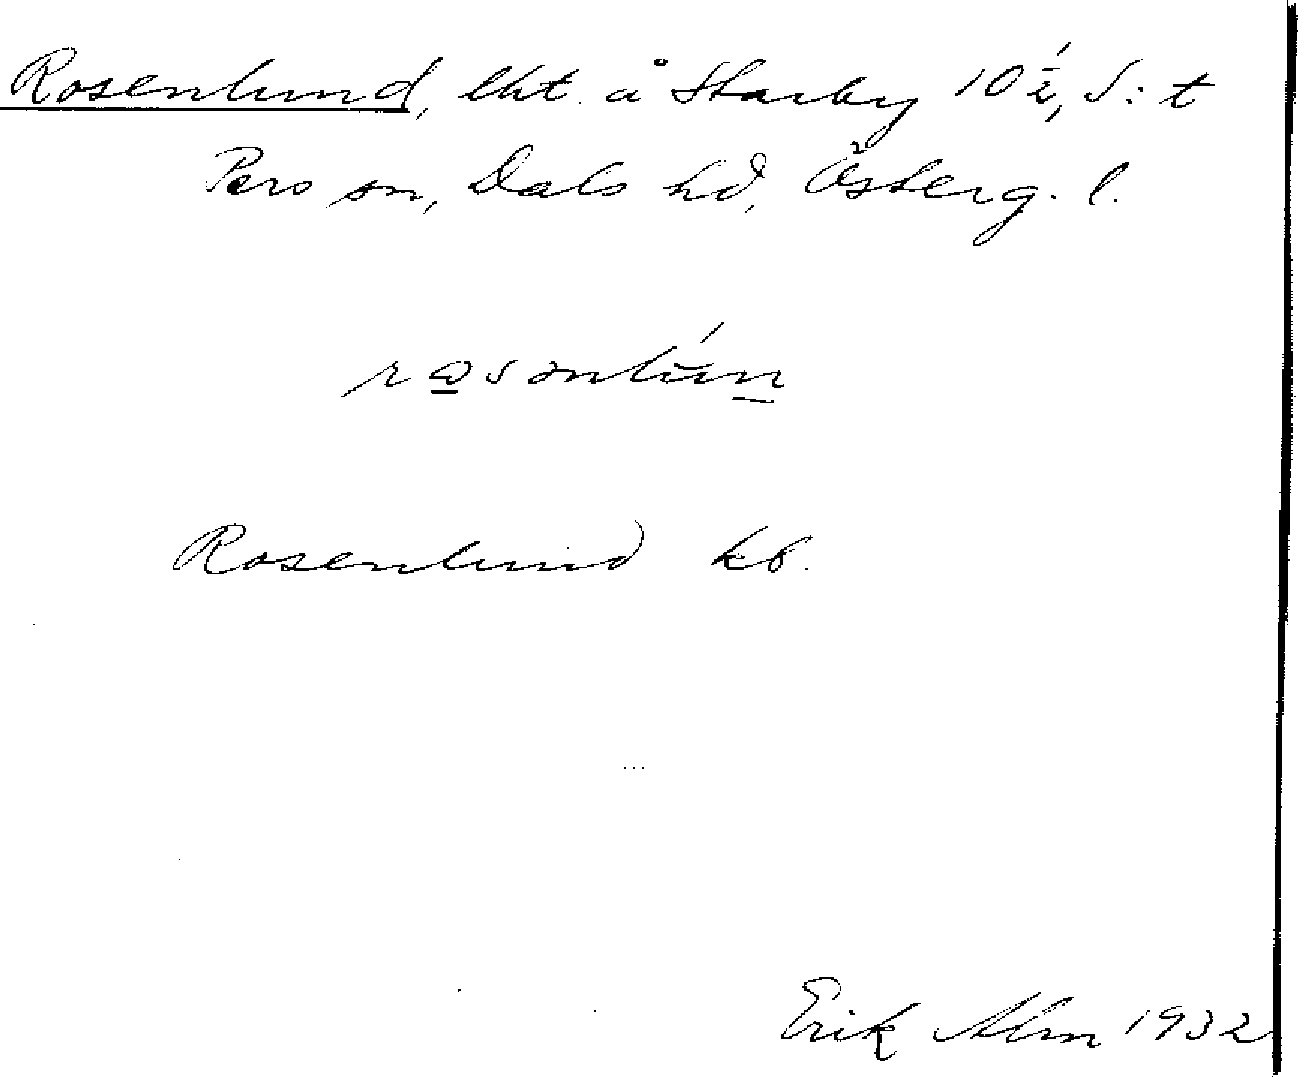 Rosenlund, lht. å Starby 10 1/2, S:t
Pers sn, Dals hd, Österg. l.
Rosenlund kb.
Erik Alm 1932